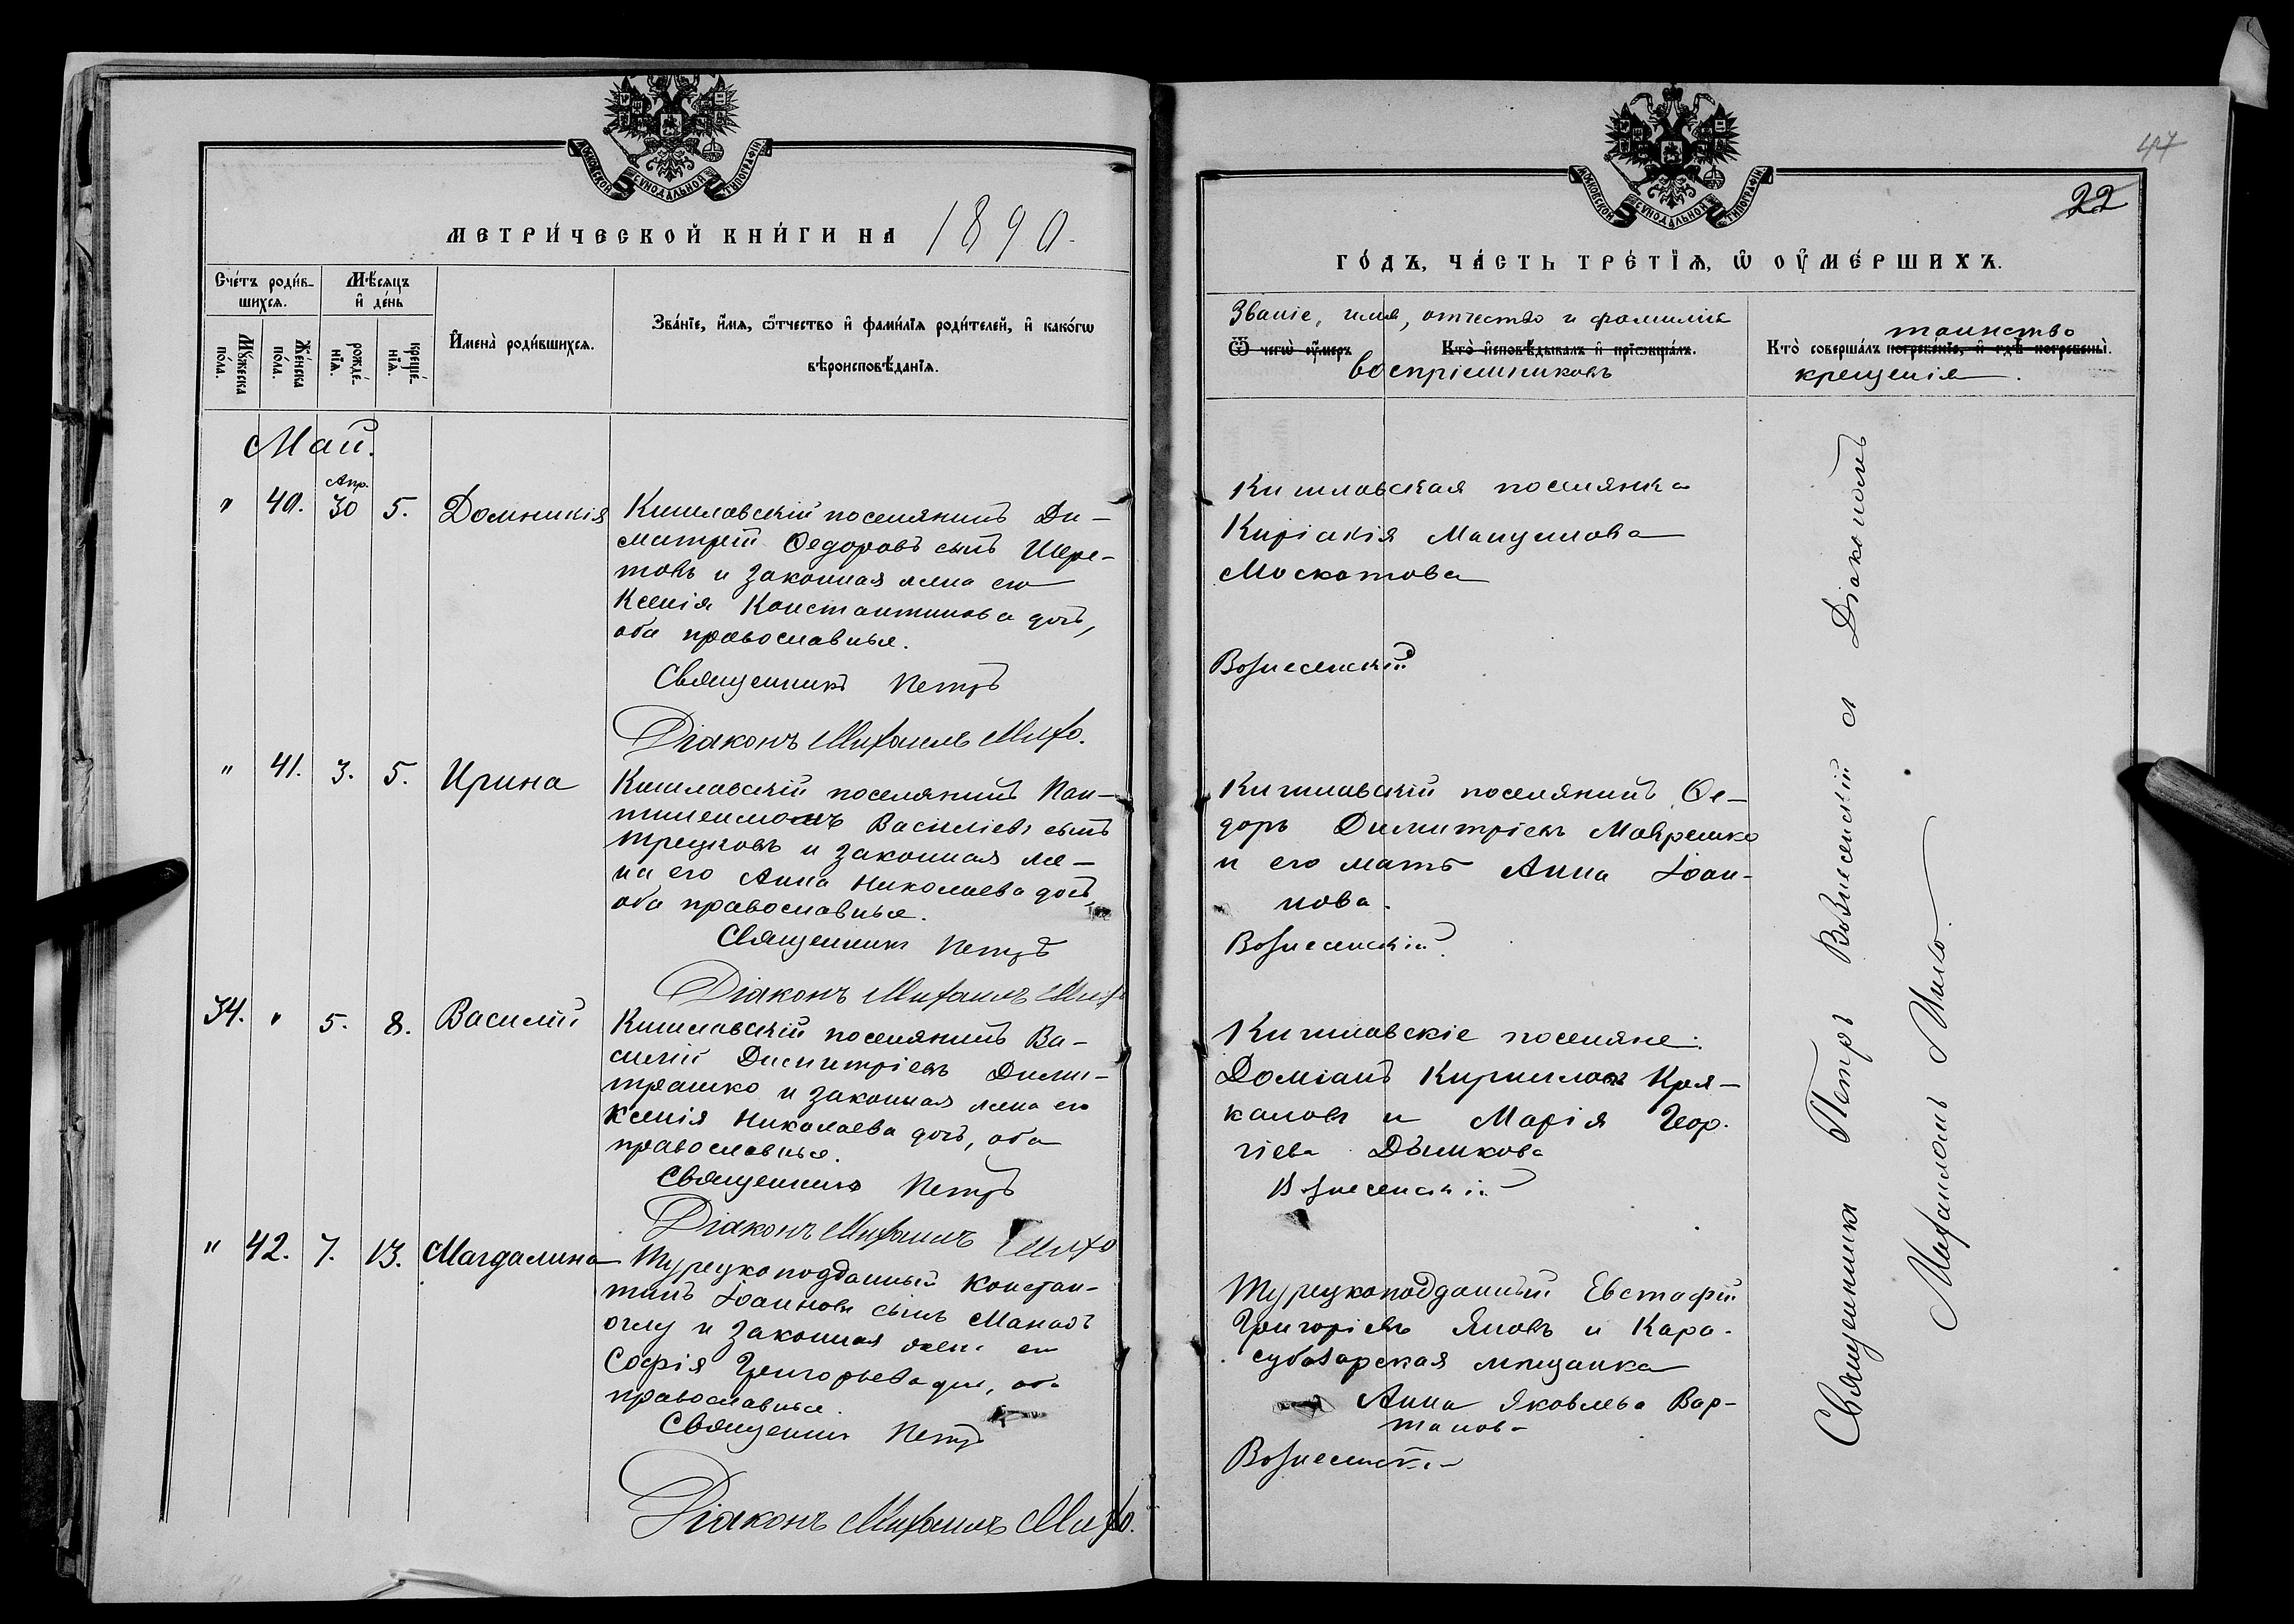 МОСКОВСКОЙ СУНОДАЛЬНОЙ ТИПОГРАФІИ
МЕТРИ́ЧЕСКОЙ КНИ́ГИ НА 1890.
Сче́тъ роди́в-
шихсѧ.
Мѣ́сѧцъ
и҆ де́нь
Мꙋ́жеска
по́ла.
Же́нска
по́ла.
рожде́-
нїѧ.
креще́-
нїѧ.
И҆мена̀ роди́вшихсѧ.
Зва́нїе, и҆́мѧ, ѻ҆́тчество и҆ фами́лїѧ роди́телей, и҆ како́гѡ
вѣроисповѣ́данїѧ.
Май.
" 40. Апр. 30 5. Домникія
Кишлавскій поселянинъ Ди-
митрій Ѳедоровъ сынъ Шере-
товъ и законная жена его
Ксенія Константинова дочь,
оба православные.
Священникъ Петръ
Діаконъ Михаилъ Михо.
" 41. 3. 5. Ирина
Кишлавскій поселянинъ Пан-
тилеимонъ Василіевъ сынъ
и законная же-
на его Анна Николаева дочь,
оба православные.
Священникъ Петръ
Діаконъ Михаилъ Михо
34. " 5. 8. Василій
Кишлавскій поселянинъ Ва-
силій Димитріевъ Дими-
трашко и законная жена его
Ксенія Николаева дочь, оба
православные.
Священникъ Петръ
Діаконъ Михаилъ Михо
" 42. 7. 13. Магдалина
Турецкоподданный Констан-
тинъ Іоанновъ сынъ Манаоъ
оглу и законная жена его
Софія Григорьева доч, оба
православные.
Священникъ Петръ
Діаконъ Михаилъ Михо.
47
22
МОСКОВСКОЙ СУНОДАЛЬНОЙ ТИПОГРАФІИ
ГО́ДЪ, ЧА́СТЬ ТРЕ́ТЇѦ, Ѡ҆ ОУ҆МЕ́РШИХЪ.
Званіе, имя, отчество и фамилія
Ѿ чегѡ̀ оу҆́меръ
Кто̀ и҆сповѣ́дывалъ и҆ прїѡбща́лъ.
воспріемниковъ
таинство
Кто̀ соверша́лъ погребе́нїе, и҆ гдѣ̀ погребены̀.
крещенія.
Кишлавская поселянка
Киріакія Мануилова
Москотова
Вознесенскій
Кишлавскій поселянинъ Ѳе-
доръ Димитріевъ Маврешко
и его мать Анна Іоан-
нова.
Вознесенскій
Кишлавскіе поселяне:
Доміанъ Кирилловъ Кра-
каловъ и Марія Геор-
гіева Дымкова
Вознесенскій
Турецкоподданный Евстафій
Григорьевъ Яновъ и Кара-
субазарская мещанка
Анна Яковлева Вар-
танова
Вознесенскій
Священникъ Петръ Вознесенскій съ Діакономъ
Михаиломъ Михо.